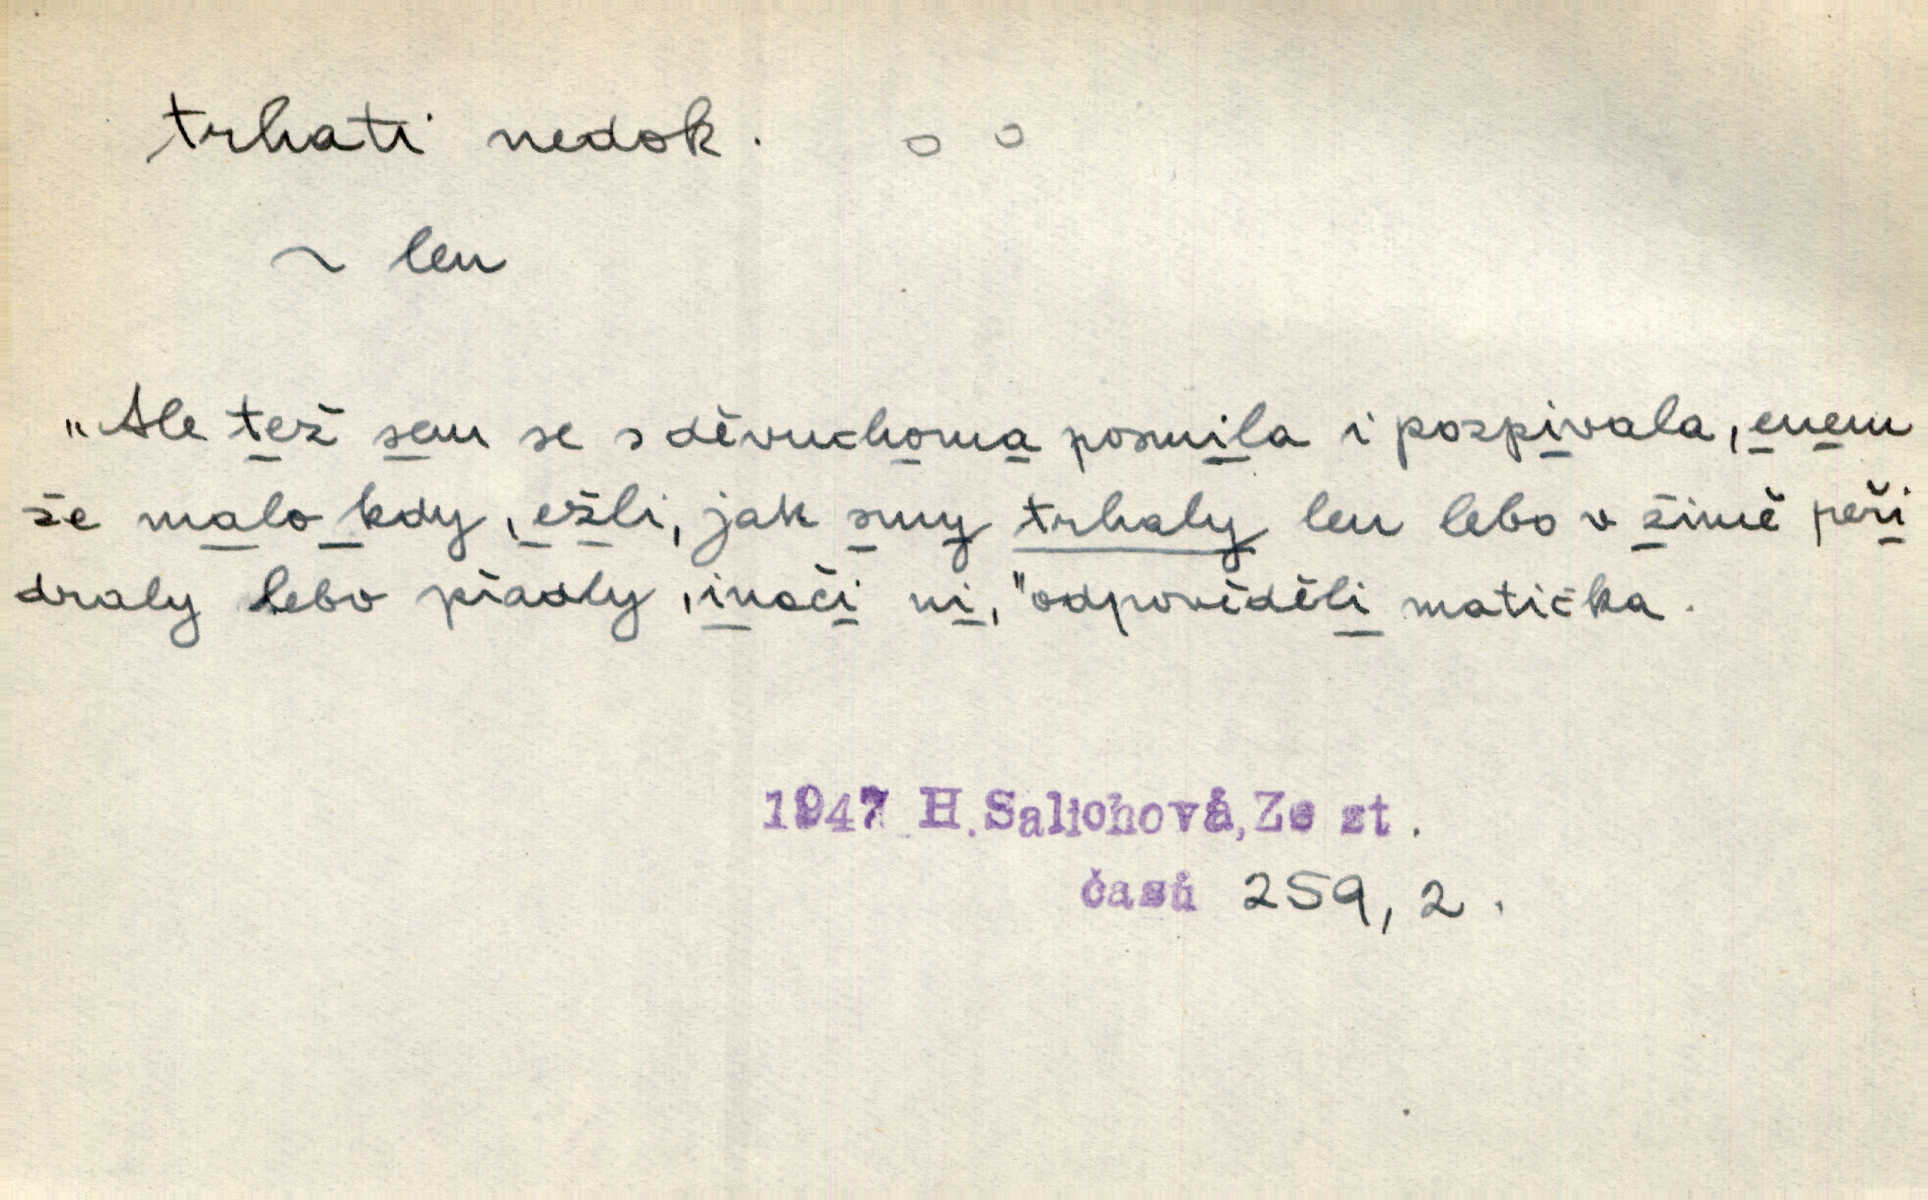 trhati nedok.
~ len
„Ale tež sem se s děvuchoma posmila i pozpivala, enem
že malo kdy, ežli, jak smy trhaly len lebo v zimě peři
draly lebo přadly, inači ni," odpověděli matička.
1947 H. Salichová, Ze st.
časů 259, 2.